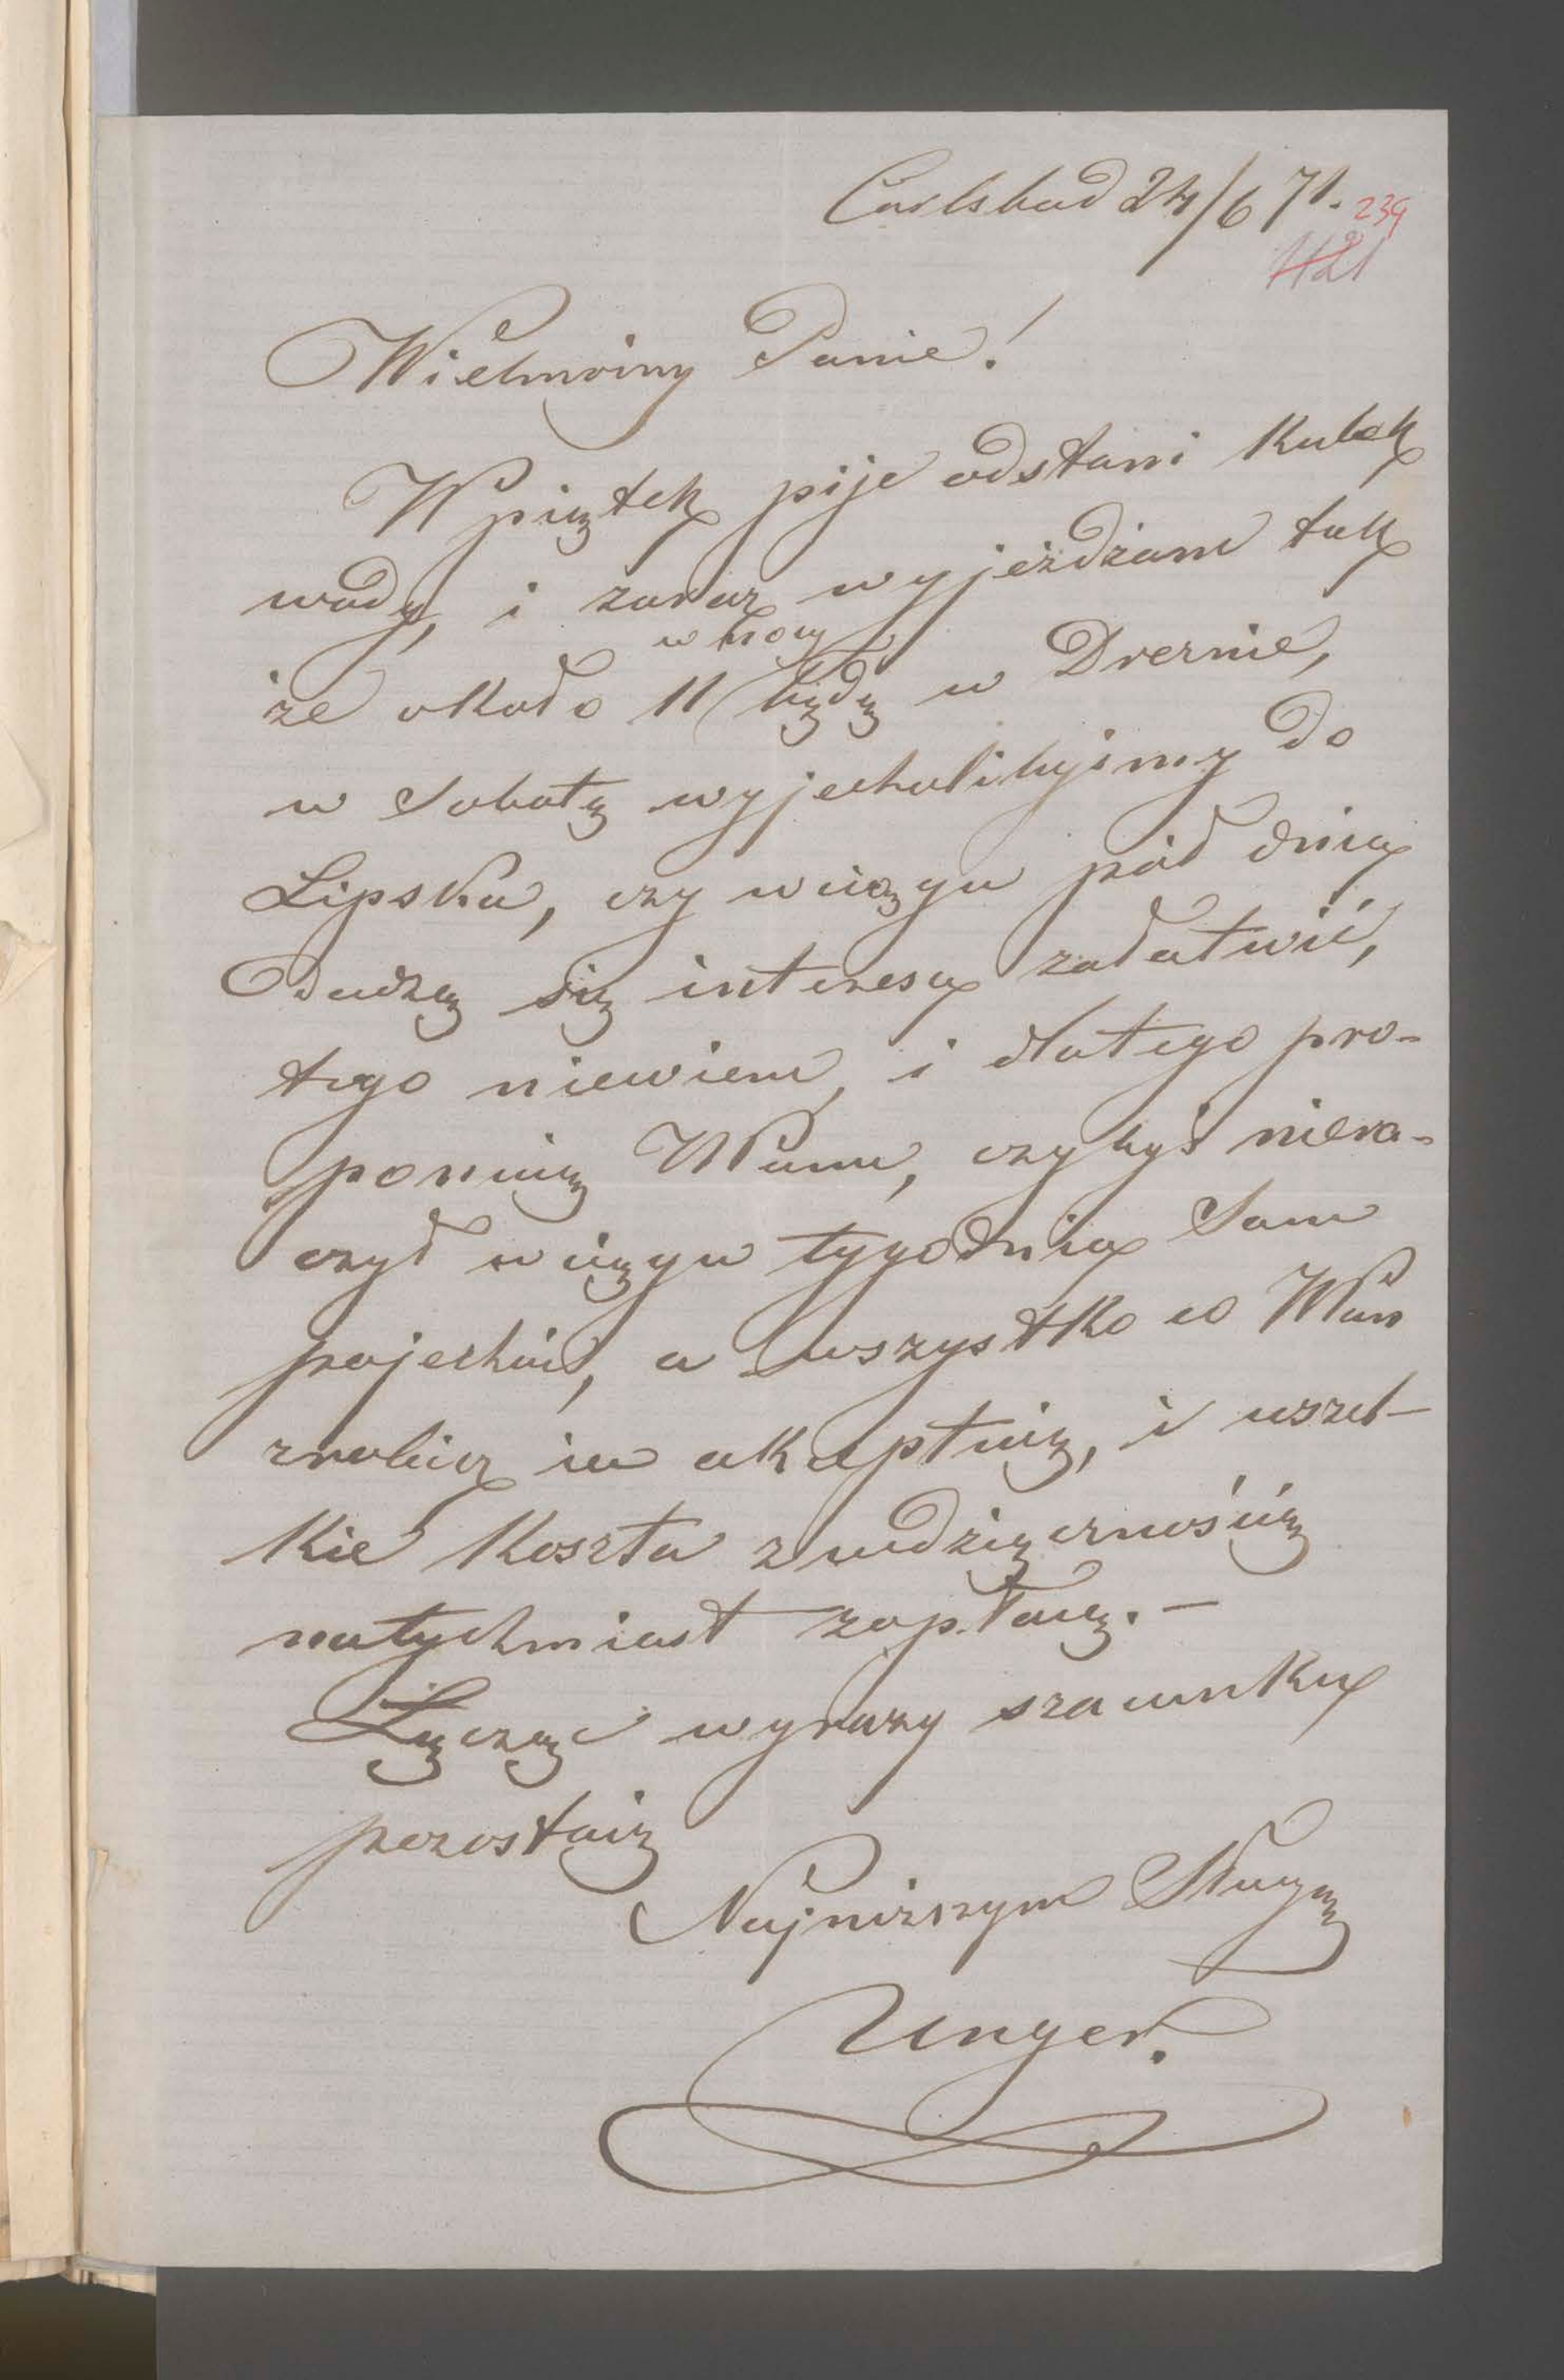 Carlsbad 24/6 71. 239
1121
Wielmożny Panie!
W piątek piję ostatni kubek
wody, i zaraz wyjeżdżam tak
w nocy
że około 11 będę w Dreznie,
w Sobotę wyjechalibyśmy do
Lipska, czy w ciągu pół dnia
dadzą się interesa załatwić,
tego niewiem, i dlatego pro-
ponuię WPanu, czybyś niera-
czył w ciągu tygodnia Sam
pojechać, a wszystko co WPan
zrobisz ia akceptuię, i wszel-
kie koszta z wdzięcznością
natychmiast zapłacę. —
Łącząc wyrazy szacunku
pozostaię
Najniższym Sługą
Unger.